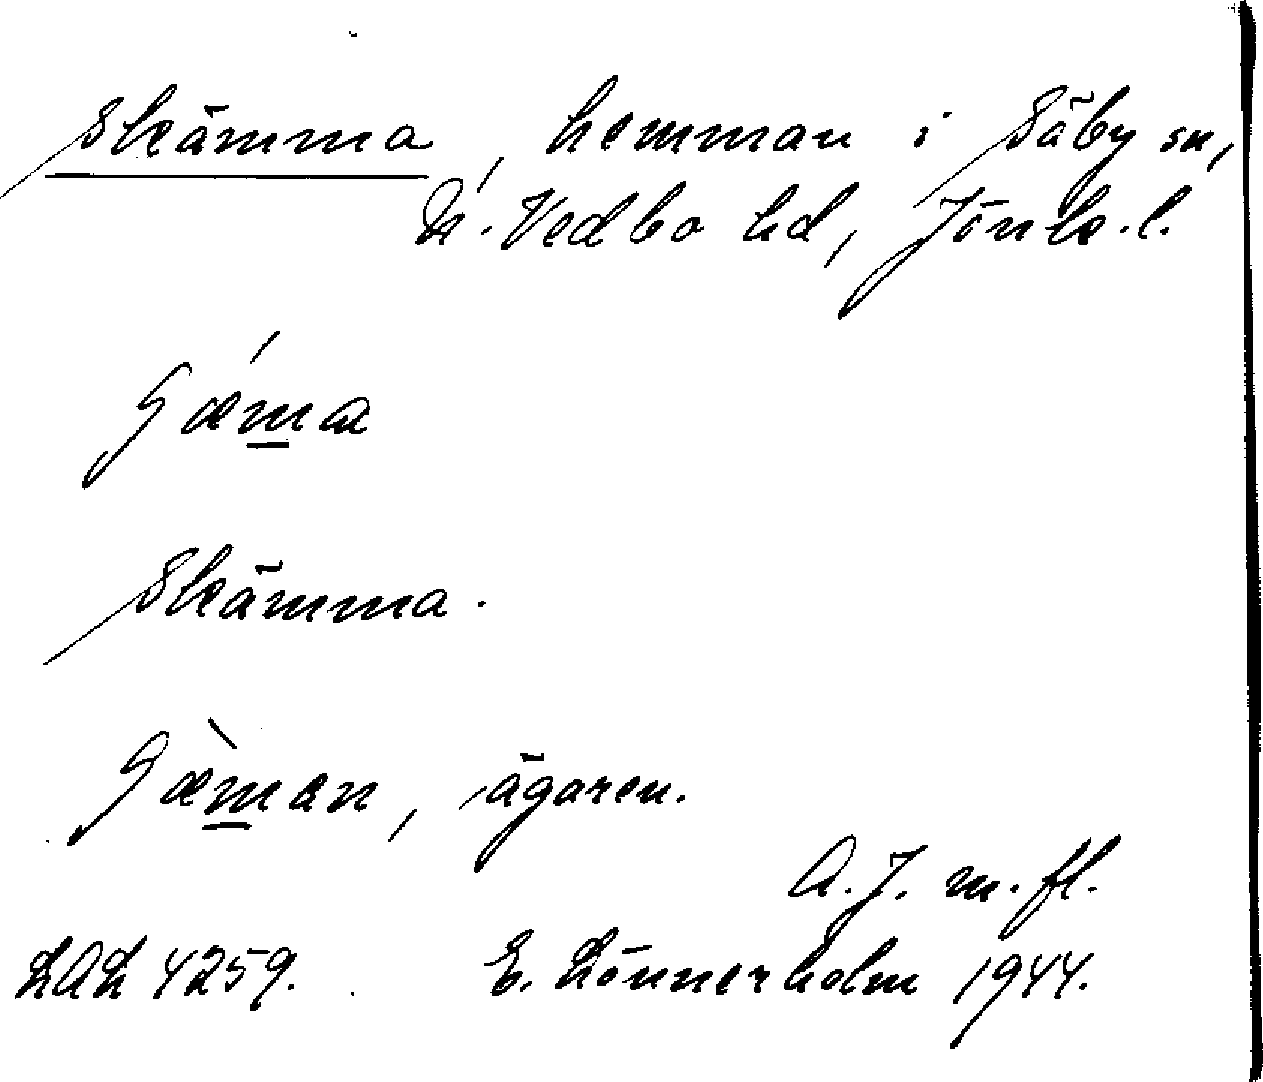 Skämma, hemman i Säby sn,
N. Vedbo hd, Jönk. l.
ʃæ´ma
Skämma.
ʃæ`man, ägaren.
A. J. m. fl.
LAL 4259. E. Lönnerholm 1944.